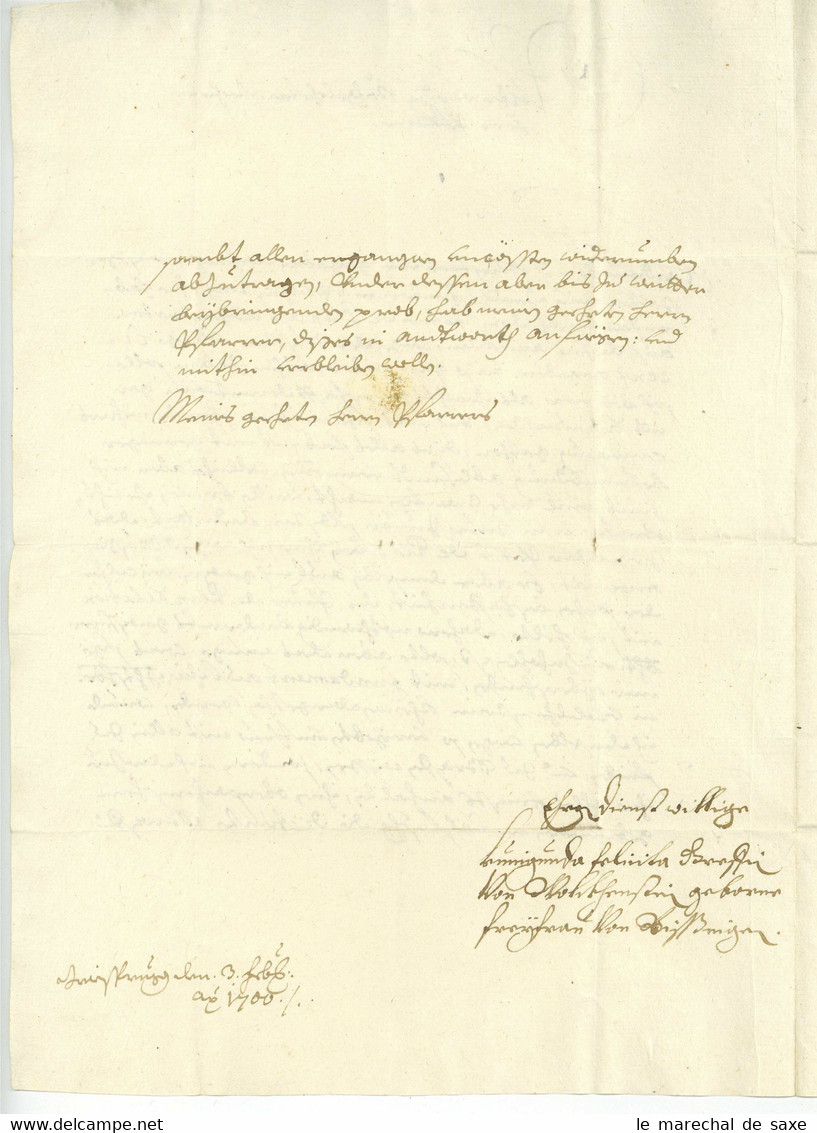 sambt allen ergangnen uncössten widerumben
abzutragen, Vnder dessen aber bis zu
beybringenden prob, hab mein geehrten Herrn
Pfarrer, dises in andtworth anfüegen: und
mithin verbleiben wollen.
Meines geehrten Herrn Pfarrers
dienst willige
Kunigunda felicita Gräffin
Von Wolckhenstein geborne
freÿfrau Von Bissingen.
Insprugg den. 3. febr:
aõ 1700 ./.
www.delcampe.net
le marechal de saxe